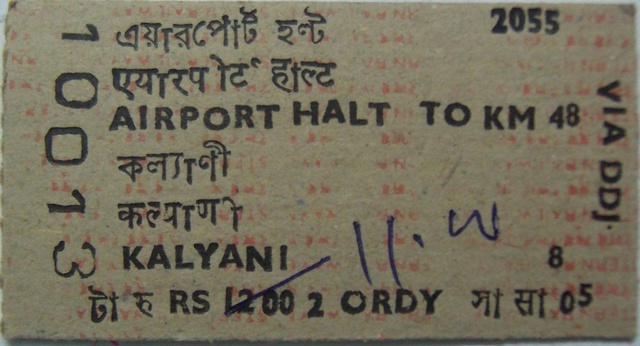 2055
এয়ারপোর্ট হল্ট
एयारपोर्ट हाल्ट
AIRPORT HALT TO KM 48
কল্যাণী
कल्याणी
KALYANI 11.
8
টা रु RS 1200 2 ORDY সা सा 05
10013
VIA DDJ.